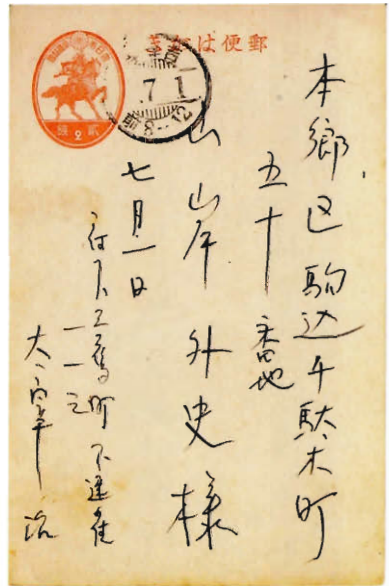 郵便はがき
本郷区駒込千駄木町
五十番地
山岸外史様
七月一日
府下三鷹町下連雀
一一三
太宰治
7 1